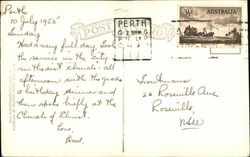 Perth
10 July 1955
Sunday
Had a very full day. Took
the service in the city
methodist church: all
afternoon with the
a birthday dinner and
then spoke briefly at the
Church of Christ.
Love,
Dad.
POST CARD
PERTH
3½D AUSTRALIA
26 Roseville Ave
Roseville
NSW